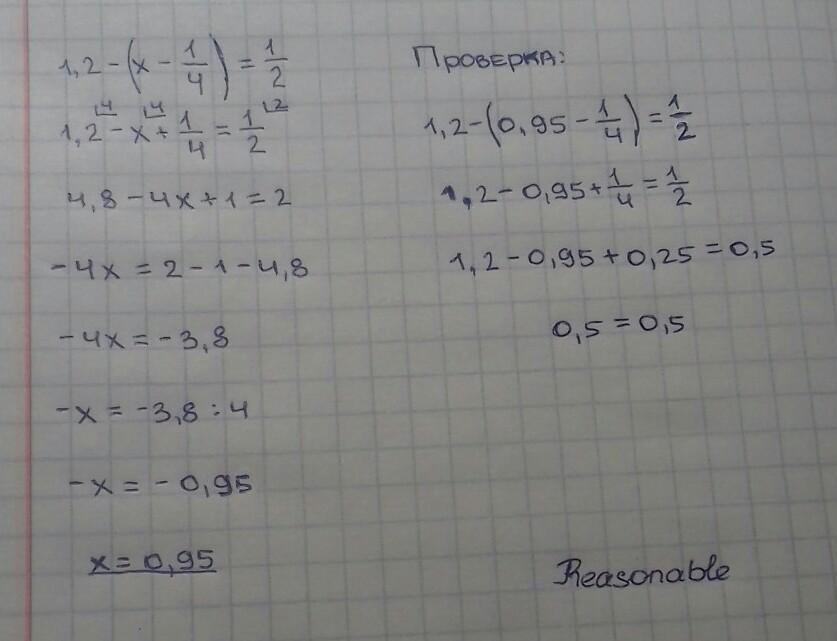 1,2 - (x - 1/4) = 1/2
1,2⌊4 - x⌊4 + 1/4 = 1/2⌊2
4,8 - 4x + 1 = 2
-4x = 2 - 1 - 4,8
-4x = -3,8
-x = -3,8 : 4
-x = -0,95
x = 0,95
Проверка:
1,2 - (0,95 - 1/4) = 1/2
1,2 - 0,95 + 1/4 = 1/2
1,2 - 0,95 + 0,25 = 0,5
0,5 = 0,5
Reasonable